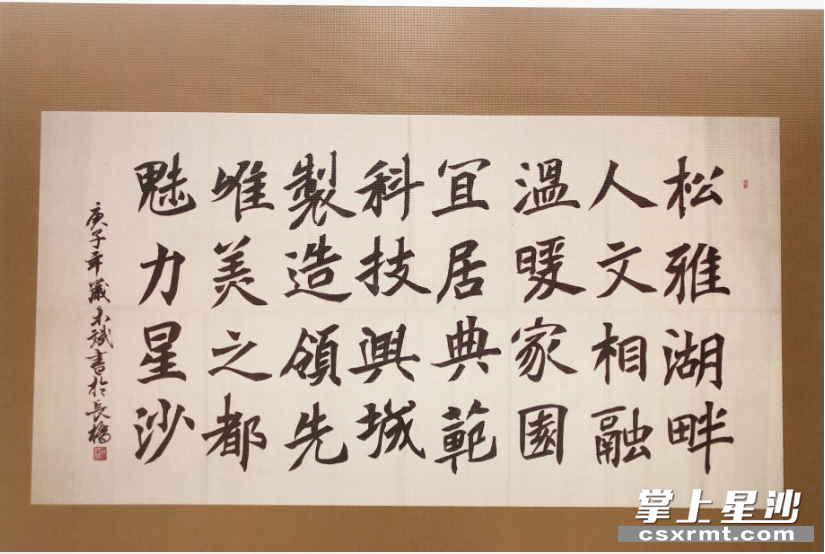 松雅湖畔
人文相融
溫暖家園
宜居典範
科技興城
製造領先
唯美之都
魅力星沙
庚子年歲末斌書於長橋
掌上星沙
csxrmt.com